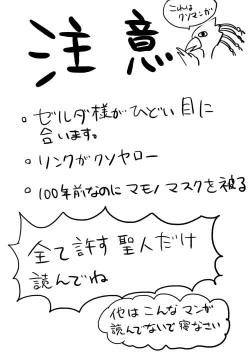 これは
クソマンガ
注意
○ゼルダ様がひどい目に
合います。
○リンクがクソヤロー
○100年前なのにマモノマスクを被る
全て許す聖人だけ
読んでね
他はこんなマンガ
読んでないで寝なさい